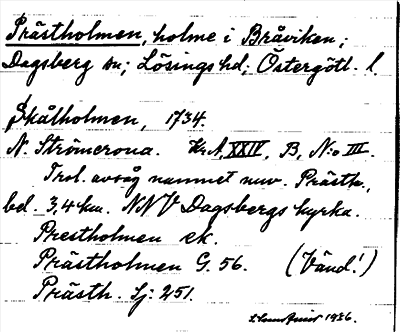 Prästholmen, holme i Bråviken;
Dagsberg sn; Lösings hd; Östergötl. l.
Skålholmen, 1734.
N. Strömerona. Kr. A, XXIV, B, N:o III.
Trol. avsåg namnet nuv. Prästh.,
bel. 3,4 km. NNV Dagsbergs kyrka.
Prestholmen ek.
Prästholmen G. 56. (Vänd!)
Prästh. Sj: 251.
1926.